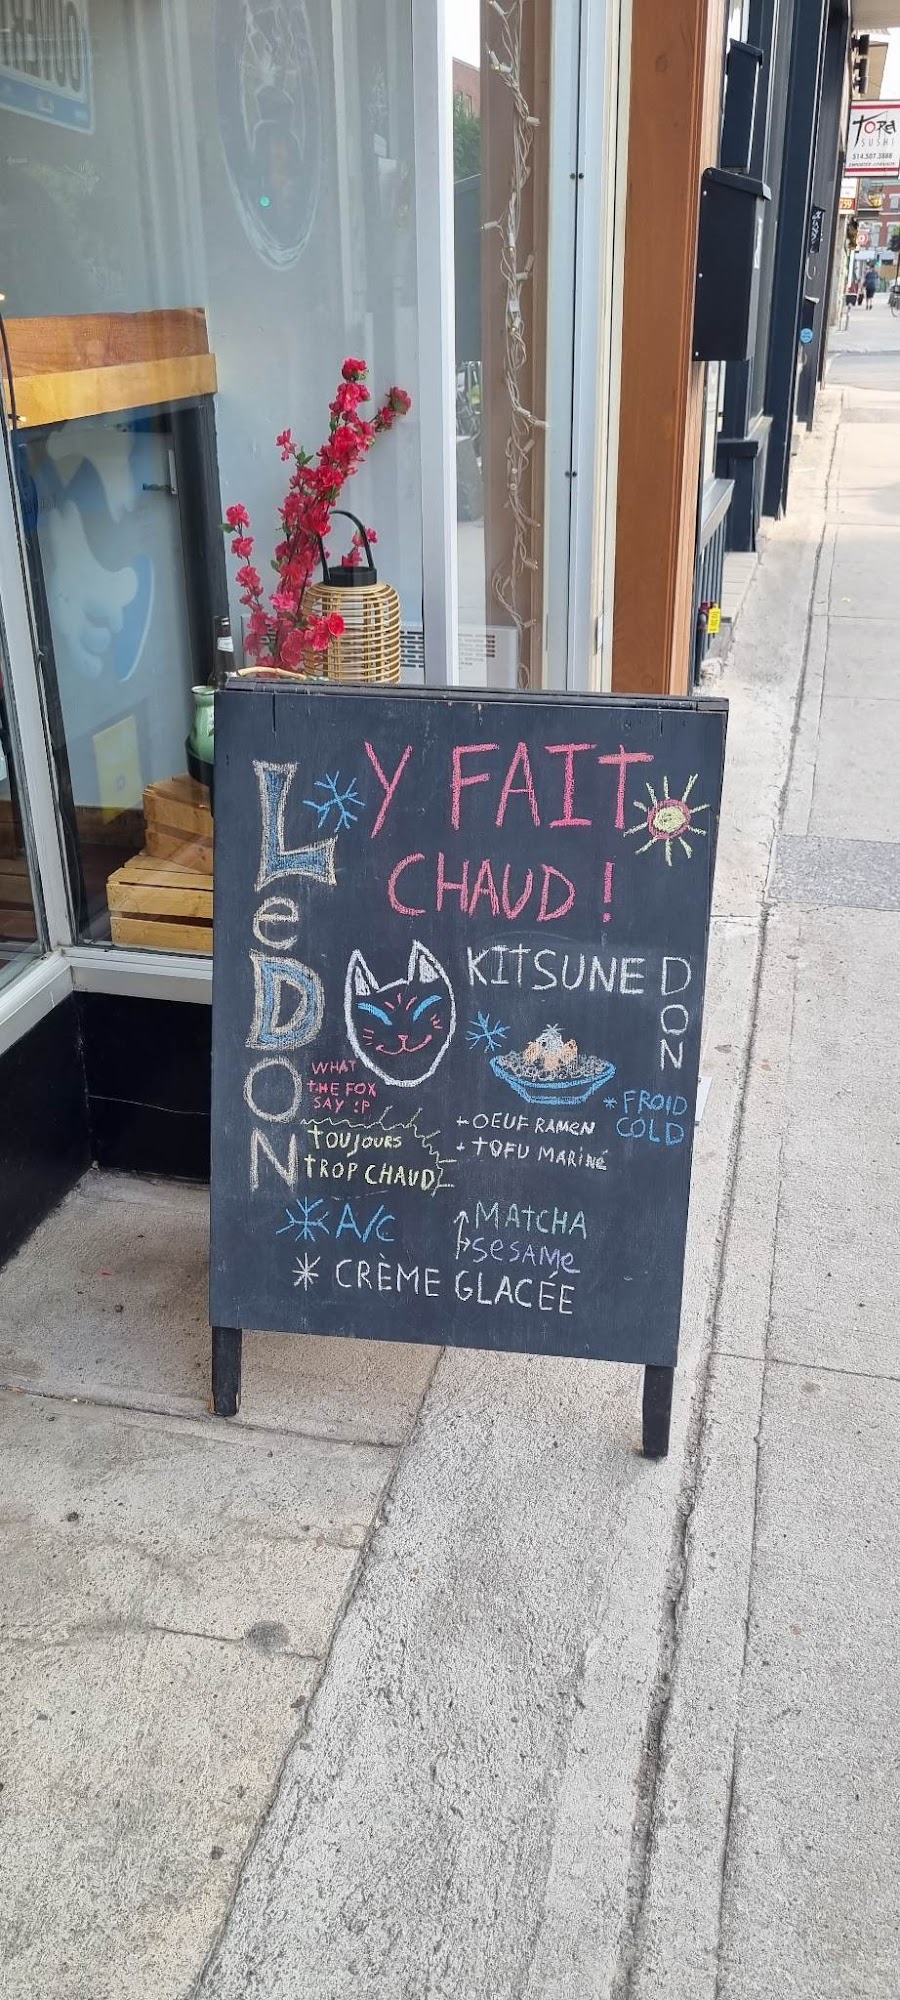 Tora
SUSHI
514.507.3888
Y FAIT
CHAUD !
LeDON
KITSUNE DON
WHAT
THE FOX
SAY :P
* FROID
COLD
+ OEUF RAMEN
+ TOFU MARINÉ
TOUJOURS
TROP CHAUD
A/C
MATCHA
SESAME
* CRÈME GLACÉE